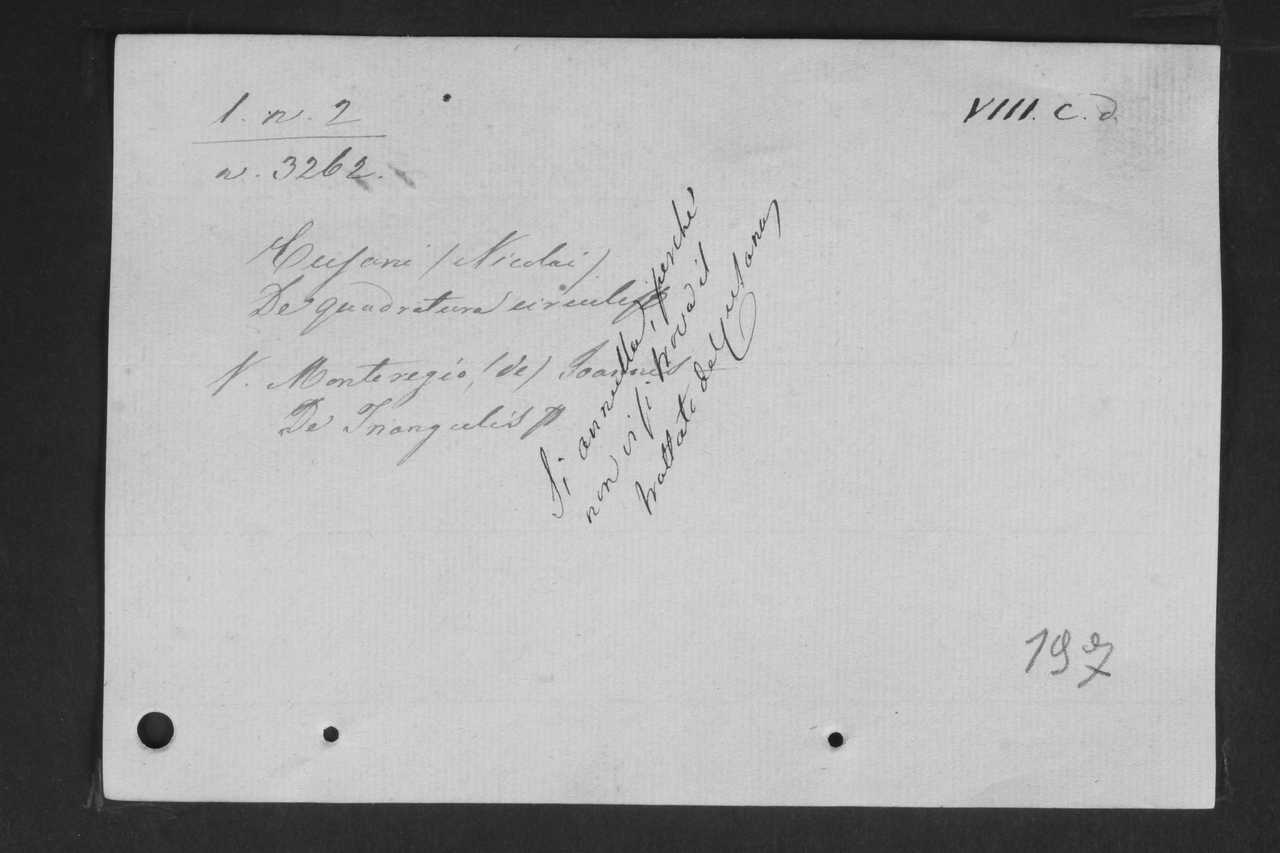 1. n. 2
VIII. C. d.
n. 3262.
Cusani (Nicolai)
De quadratura circuli
V. Monteregio, (de) Joannes
De Triangulis
Si annulla, perché
non vi si trova il
trattato de Cusano
197